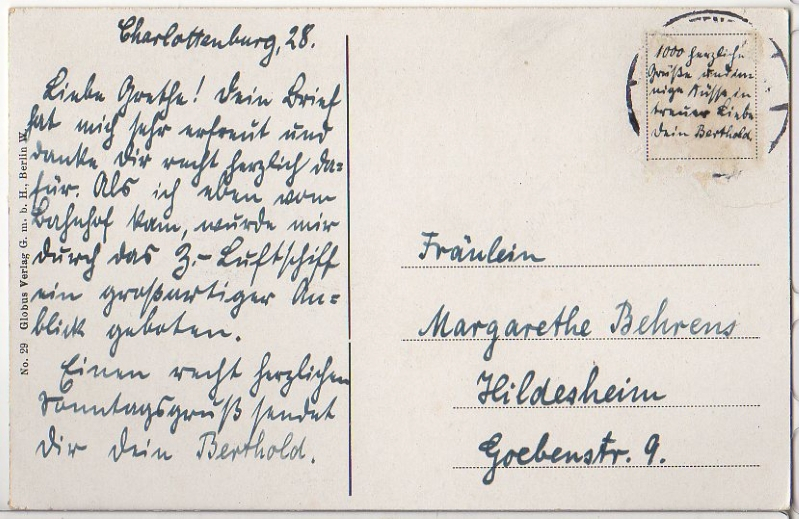 Charlottenburg, 28.
Liebe Grethe! Dein Brief
hat mich sehr erfreut und
danke Dir recht herzlich da=
für. Als ich eben vom
Bahnhof kam, wurde mir
durch das Z.-Luftschiff
ein großartiger An=
blick geboten.
Einen recht herzlichen
Sonntagsgruß sendet
Dir Dein Berthold.
No. 29 Globus Verlag G. m. b. H., Berlin W.
1000 herzliche
Grüße und in
nige Küsse in
treuer Liebe
Dein Berthold
Fräulein
Margarethe Behrens
Hildesheim
Goebenstr. 9.